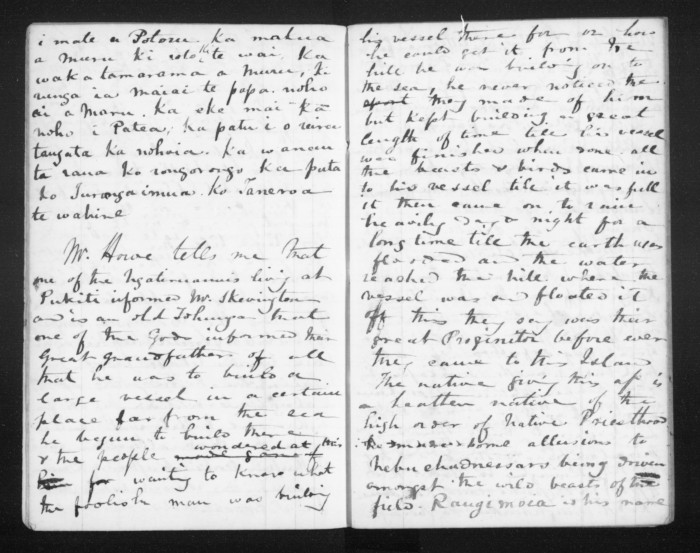 i mate a Potoru. Ka mahua
a Muru ki roto i te wai. Ka
waka tamarama a Muru, ki
runga ia maiai te papa. noho
ai a Maru. Ka eke mai Ka
noho i Patea, ka patu i o reira
tangata Ka nohoia. Ka wanau
ta raua Ko rongorongo Ka puta
ko Turangaimua. Ko Taneroa
te wahine
Mr. Howe tells me that
one of the Ngatiruanuis living at
Pukiti informed Mr. Skevington
and is an old Tohunga that
one of the Gods informed their
Great grandfather of all
that he was to build a
large vessel in a certain
place far from the sea
he begun to build there
& the people wondered at this
for wanting to know what
the foolish man was building
his vessel there for or how
he could get it from the
hill he was building on to
the sea, he never noticed the
sport they made of him
but kept building a great
length of time till his vessel
was finished when some all
the beasts & birds came in
to his vessel till it was full
it then came on to rain
heavily day & night for a
long time till the earth was
flooded and the water
reached the hill where the
vessel was and floated it
off this they say was their
great Progenitor before ever
they came to this Island
The native giving this as is
a heathen native of the
high order of Native Priesthood
he makes some allusions to
Nebuchadnessars being driven
amongst the wild beasts of the
field. Rangimoia is his name